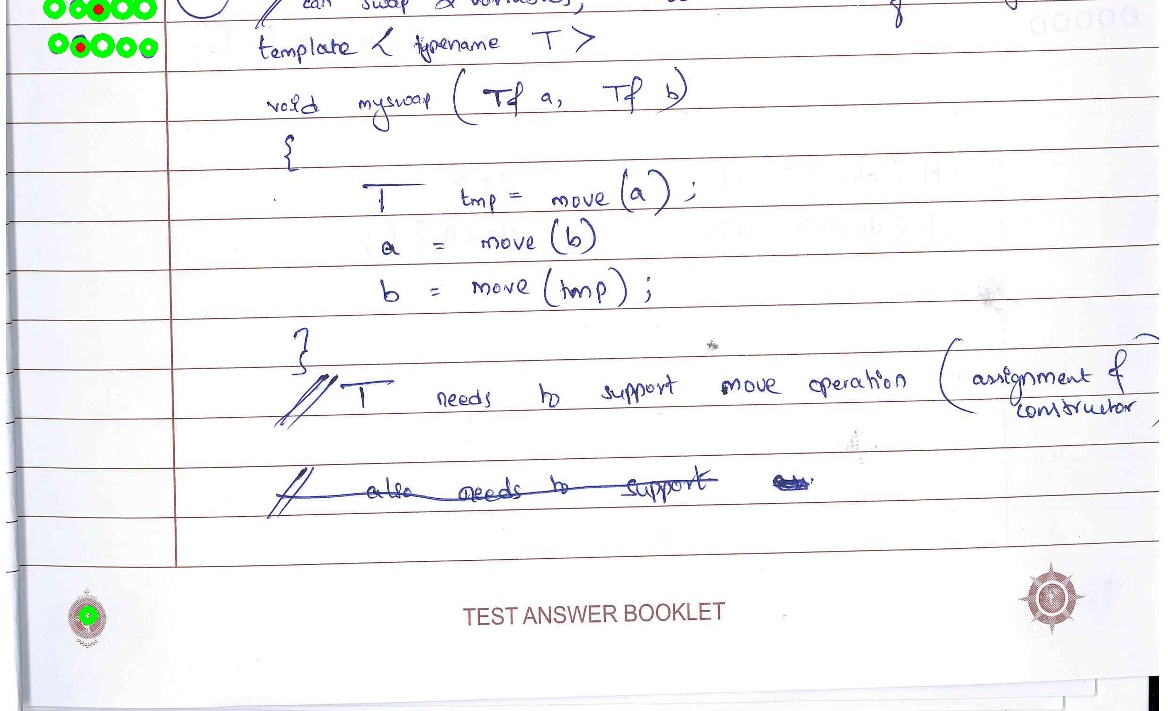 // can swap 2 variables,
template < typename T >
void myswap ( T& a, T& b )
{
T tmp = move (a) ;
a = move (b)
b = move (tmp) ;
}
// T needs to support move operation ( assignment &
constructor )
// also needs to support
TEST ANSWER BOOKLET